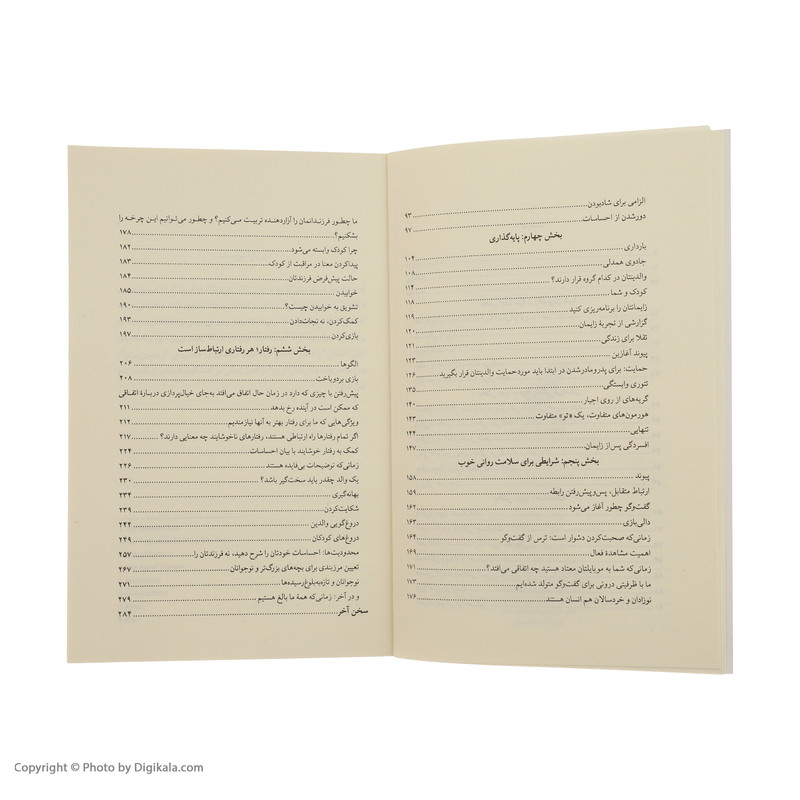 الزامی برای شادبودن ۹۳
دورشدن از احساسات ۹۷
بخش چهارم: پایه‌گذاری
بارداری ۱۰۴
جادوی همدلی ۱۰۸
والدینتان در کدام گروه قرار دارند؟ ۱۱۴
کودک و شما ۱۱۸
زایمانتان را برنامه‌ریزی کنید ۱۱۹
گزارشی از تجربهٔ زایمان ۱۲۰
تقلا برای زندگی ۱۲۱
پیوند آغازین ۱۲۳
حمایت: برای پدرومادرشدن در ابتدا باید مورد حمایت والدینتان قرار بگیرید ۱۲۶
تئوری وابستگی ۱۳۵
گریه‌های از روی اجبار ۱۴۰
هورمون‌های متفاوت، یک «تو» متفاوت
تنهایی ۱۴۴
افسردگی پس‌از زایمان ۱۴۷
بخش پنجم: شرایطی برای سلامت روانی خوب
پیوند ۱۵۸
ارتباط متقابل، پس‌وپیش‌رفتن رابطه ۱۵۹
گفت‌وگو چطور آغاز می‌شود ۱۶۲
دالی‌بازی ۱۶۳
زمانی‌که صحبت‌کردن دشوار است: ترس از گفت‌وگو ۱۶۴
اهمیت مشاهدهٔ فعال ۱۶۹
زمانی‌که شما به موبایلتان معتاد هستید چه اتفاقی می‌افتد؟ ۱۷۱
ما با ظرفیتی درونی برای گفت‌وگو متولد شده‌ایم ۱۷۳
نوزادان و خردسالان هم انسان هستند ۱۷۶
ما چطور فرزندانمان را آزاردهنده تربیت می‌کنیم؟ و چطور می‌توانیم این چرخه را
بشکنیم؟ ۱۷۸
چرا کودک وابسته می‌شود ۱۸۲
پیداکردن معنا در مراقبت از کودک ۱۸۳
حالت پیش‌فرض فرزندتان ۱۸۴
خوابیدن ۱۸۵
تشویق به خوابیدن چیست؟ ۱۹۰
کمک‌کردن، نه نجات‌دادن ۱۹۳
بازی‌کردن ۱۹۷
بخش ششم: رفتار؛ هر رفتاری ارتباط‌ساز است
الگوها ۲۰۶
بازی بردوباخت ۲۰۸
پیش‌رفتن با چیزی که دارد در زمان حال اتفاق می‌افتد به‌جای خیال‌پردازی دربارهٔ اتفاقی
که ممکن است در آینده رخ بدهد ۲۱۱
ویژگی‌هایی که ما برای رفتار بهتر به آنها نیازمندیم ۲۱۲
اگر تمام رفتارها راه ارتباطی هستند، رفتارهای ناخوشایند چه معنایی دارند؟ ۲۱۷
کمک به رفتار خوشایند با بیان احساسات ۲۲۴
زمانی‌که توضیحات بی‌فایده هستند ۲۲۶
یک والد چقدر باید سخت‌گیر باشد؟ ۲۳۰
بهانه‌گیری ۲۳۴
شکایت‌کردن ۲۳۹
دروغ‌گویی والدین ۲۴۴
دروغ‌های کودکان ۲۴۹
محدودیت‌ها: احساسات خودتان را شرح دهید، نه فرزندتان را ۲۵۷
تعیین مرزبندی برای بچه‌های بزرگ‌تر و نوجوانان ۲۶۷
نوجوانان و تازه‌به‌بلوغ‌رسیده‌ها ۲۷۱
و در آخر: زمانی‌که همهٔ ما بالغ هستیم ۲۷۹
سخن آخر ۲۸۴
Copyright © Photo by Digikala.com